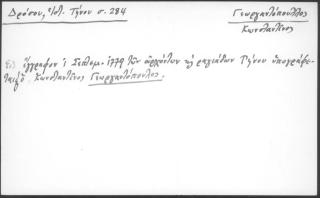 Δρόσου, Ἱστ. Τήνου σ. 284
Γεωργαντόπουλλος
Κωνσταντῖνος
ἔγγραφον 1 Σεπτεμ. 1779 τῶν ἀρχόντων κ ραγιάδων Τήνου ὑπογράφε-
ται ὁ Κωνσταντῖνος Γεωργαντόπουλος.